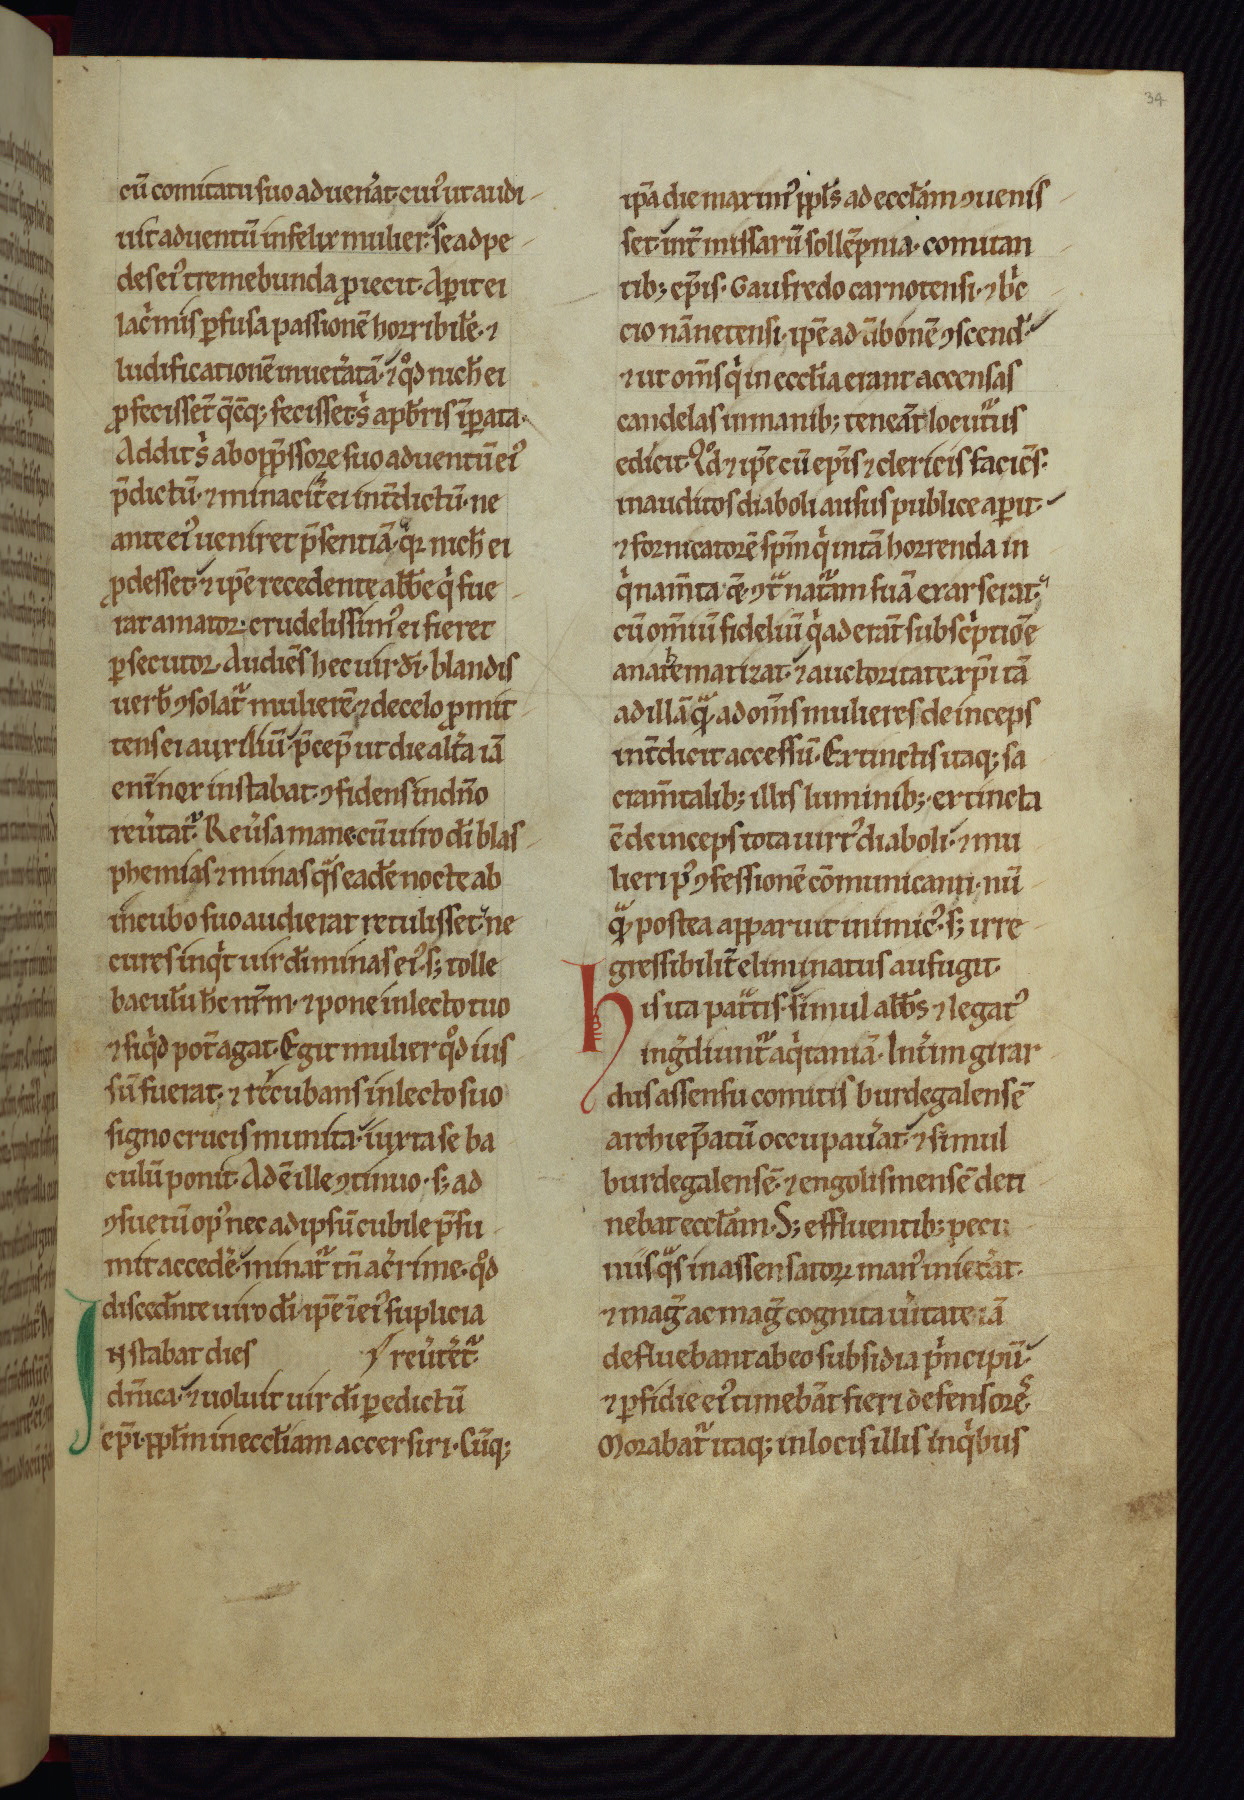 34
cū comitatu suo aduen̄at. cuiꝰ ut audi
uit aduentū infelix mulier. se ad pe
des eiꝰ tremebunda ꝓiecit. Aꝑit ei
lac̄mis ꝑfusa passionē horribilē. ⁊
ludificationē inuet̄atā. ⁊ qͦd nich̄ ei
ꝓfecissēt q̄cq; fecisset s̄ a p̄b̄ris īꝑata.
Addit s̄ ab opp̄ssore suo aduentū eiꝰ
p̄dictū. ⁊ minacit̄ ei int̄dictū. ne
ante eiꝰ ueniret p̄sentiā. qͥa nich̄ ei
ꝓdesset. ⁊ ip̄e recedente abb̄e qͥ fue
rat amator. crudelissimꝰ ei fieret
ꝑsecutor. Audiēs hec uir d̄i. blandis
uerb̄ ꝯsolat̄ mulierē. ⁊ de celo ꝓmit
tens ei auxiliū. p̄cep̄ ut die alt̄a iā
eni̅ nox instabat. ꝯfidens in dn̄o
reu̅tat̄. Reu̅sa mane. cū uiro d̄i blas
phemias ⁊ minas qͣs eadē nocte ab
incubo suo audierat retulisset. ne
cures inqͥt uir d̄i minas eiꝰ. s; tolle
baculū hc̄ nr̄m. ⁊ pone in lecto tuo
⁊ siqͥd pot̄ agat. Egit mulier qͦd ius
sū fuerat. ⁊ r̄cubans in lecto suo
signo crucis munita. iuxta se ba
culū ponit. Adē ille ꝯtinuo. s; ad
ꝯsuetū opꝰ nec ad ipsū cubile p̄su
mit accedē. minat̄ tn̄ ac̄rime. qͦd
discedn̄te uiro d̄i. ip̄e ī eiꝰ suplicia
Instabat dies reu̅tēt̄.
dn̄ica. ⁊ uoluit uir d̄i ꝑ edictū
ep̄i. pp̄lm in eccl̄iam accersiri. Cūq;
ip̄a die maximꝰ pp̄ls ad eccl̄am ꝯuenis
set. int̄ missarū sollēpnia. comitan
tib; ep̄is. Gaufredo carnotensi. ⁊ bͥc
cio nānetensi. ip̄e ad ābonē ꝯscend̄.
⁊ ut om̄s qͥ in eccl̄ia erant accensas
candelas in manib; teneāt locutus
edicit. Qͦd ⁊ ip̄e cū ep̄is ⁊ clericis faciēs.
inauditos diaboli ausus publice aꝑit.
⁊ fornicatorē sp̄m qͥ in tā horrenda in
qͥnam̄ta. ē. ꝯt̄ naturam suā exarserat.
cū om̄iū fideliū qͥ aderāt subsc̄ptiōe
anathematizat. ⁊ auctoritate xp̄i tā
ad illā qͣ ad om̄s mulieres deinceps
int̄dicit accessū. Extinctis itaq; sa
cram̄talib; illis luminib;. extincta
ē deinceps tota uirtꝰ diaboli. ⁊ mu
lieri pꝰ ꝯfessionē cōmunicanti. nū
qͣ postea apparuit inimicꝰ. s; irre
gressibilit̄ eliminatus aufugit.
His ita patͣtis. simul abb̄s ⁊ legatꝰ
ingͣdiunt̄ aqͥtaniā. Int̄im girar
dus assensu comitis burdegalensē
archiep̄atū occupauͣat. ⁊ simul
burdegalensē. ⁊ engolismensē deti
nebat eccl̄am. S; effluentib; pecu
niis qͣs in assensatorꝝ manꝰ iniec̄at.
⁊ mag̅ ac mag̅ cognita uītate iā
defluebant ab eo subsidia pͥncipū.
⁊ ꝑfidie eiꝰ timebāt fieri defensorēs.
Morabat̄ itaq; in locis illis in qͥbus